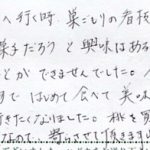 へ行く時、巣ごもりの看板
菓子だろうと興味はある
とができませんでした。
すで はじめて食べて美味
行きたくなりました。桃を買
なので、寄らせて頂きます